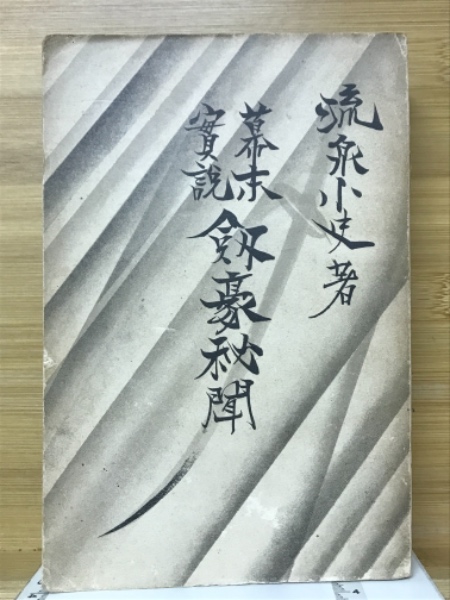 流泉小史著
幕末
實説
劔豪秘聞